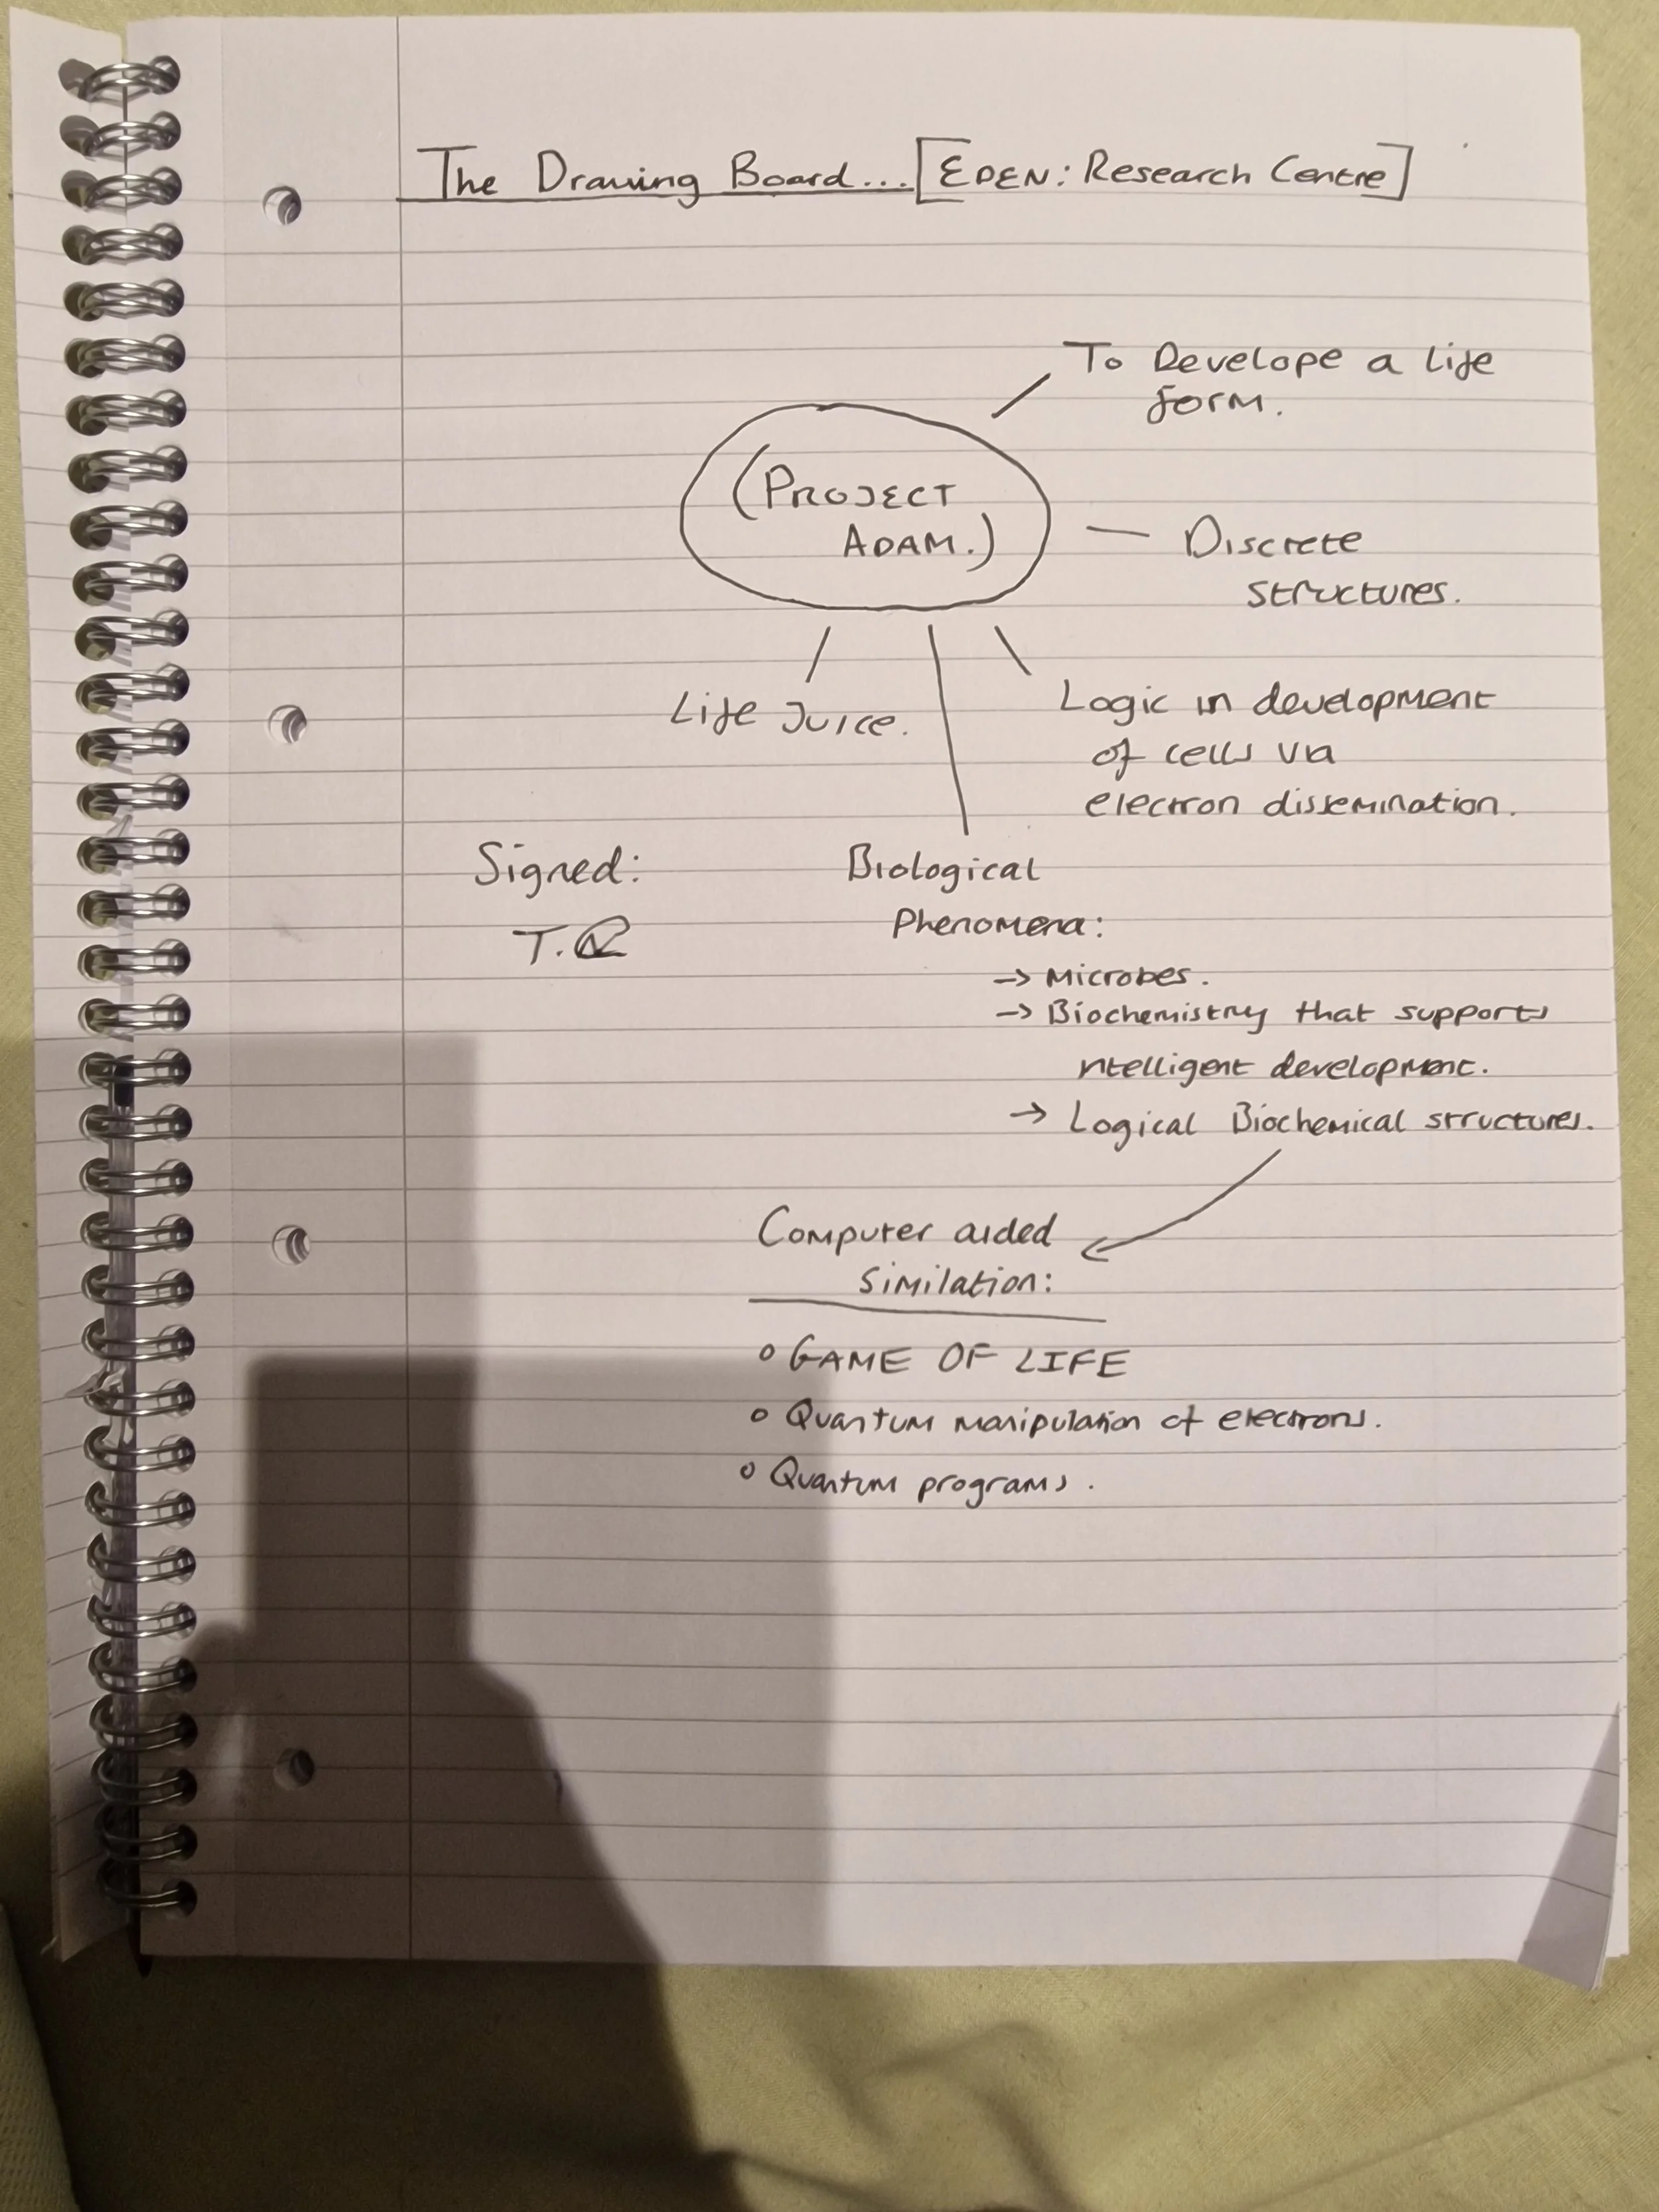 The Drawing Board... [EDEN: Research Centre]
To Develope a life
form.
(PROJECT
ADAM.)
Discrete
structures.
Life Juice.
Logic in development
of cells via
electron dissemination.
Signed:
T.
Biological
Phenomena:
→ Microbes.
→ Biochemistry that supports
intelligent development.
→ Logical Biochemical structures.
Computer aided
similation:
o GAME OF LIFE
o Quantum manipulation of electrons.
o Quantum programs.